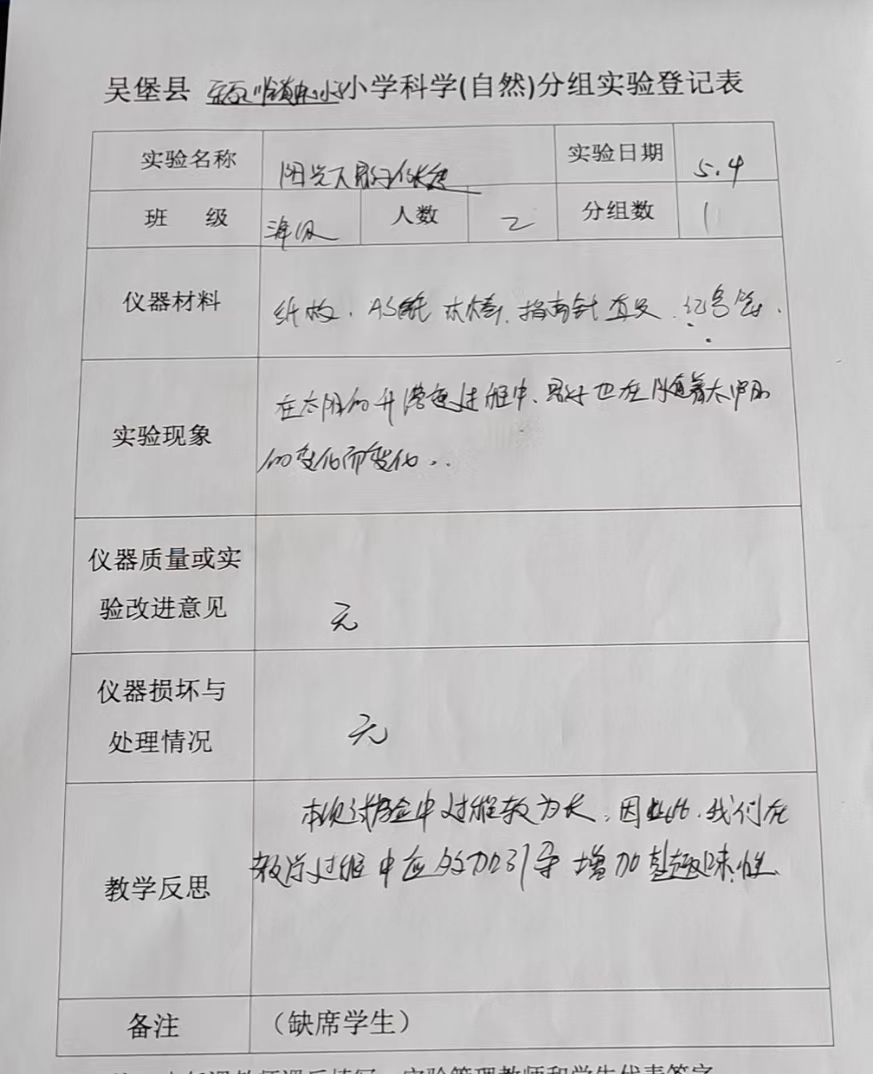 吴堡县 寇家塬镇中心小学科学(自然)分组实验登记表
实验名称 阳光下影子 实验日期 5.4
班 级 人数 2 分组数 1
仪器材料 纸板、 指南针 直尺、记号笔.
实验现象 在太阳的升落过程中、影子也在随着太阳
的变化而变化..
仪器质量或实
验改进意见 无
仪器损坏与
处理情况 无
本次试验中过程较为长,因此,我们在
教学反思 教学过程中应多加引导 增加其趣味性.
备注 (缺席学生)